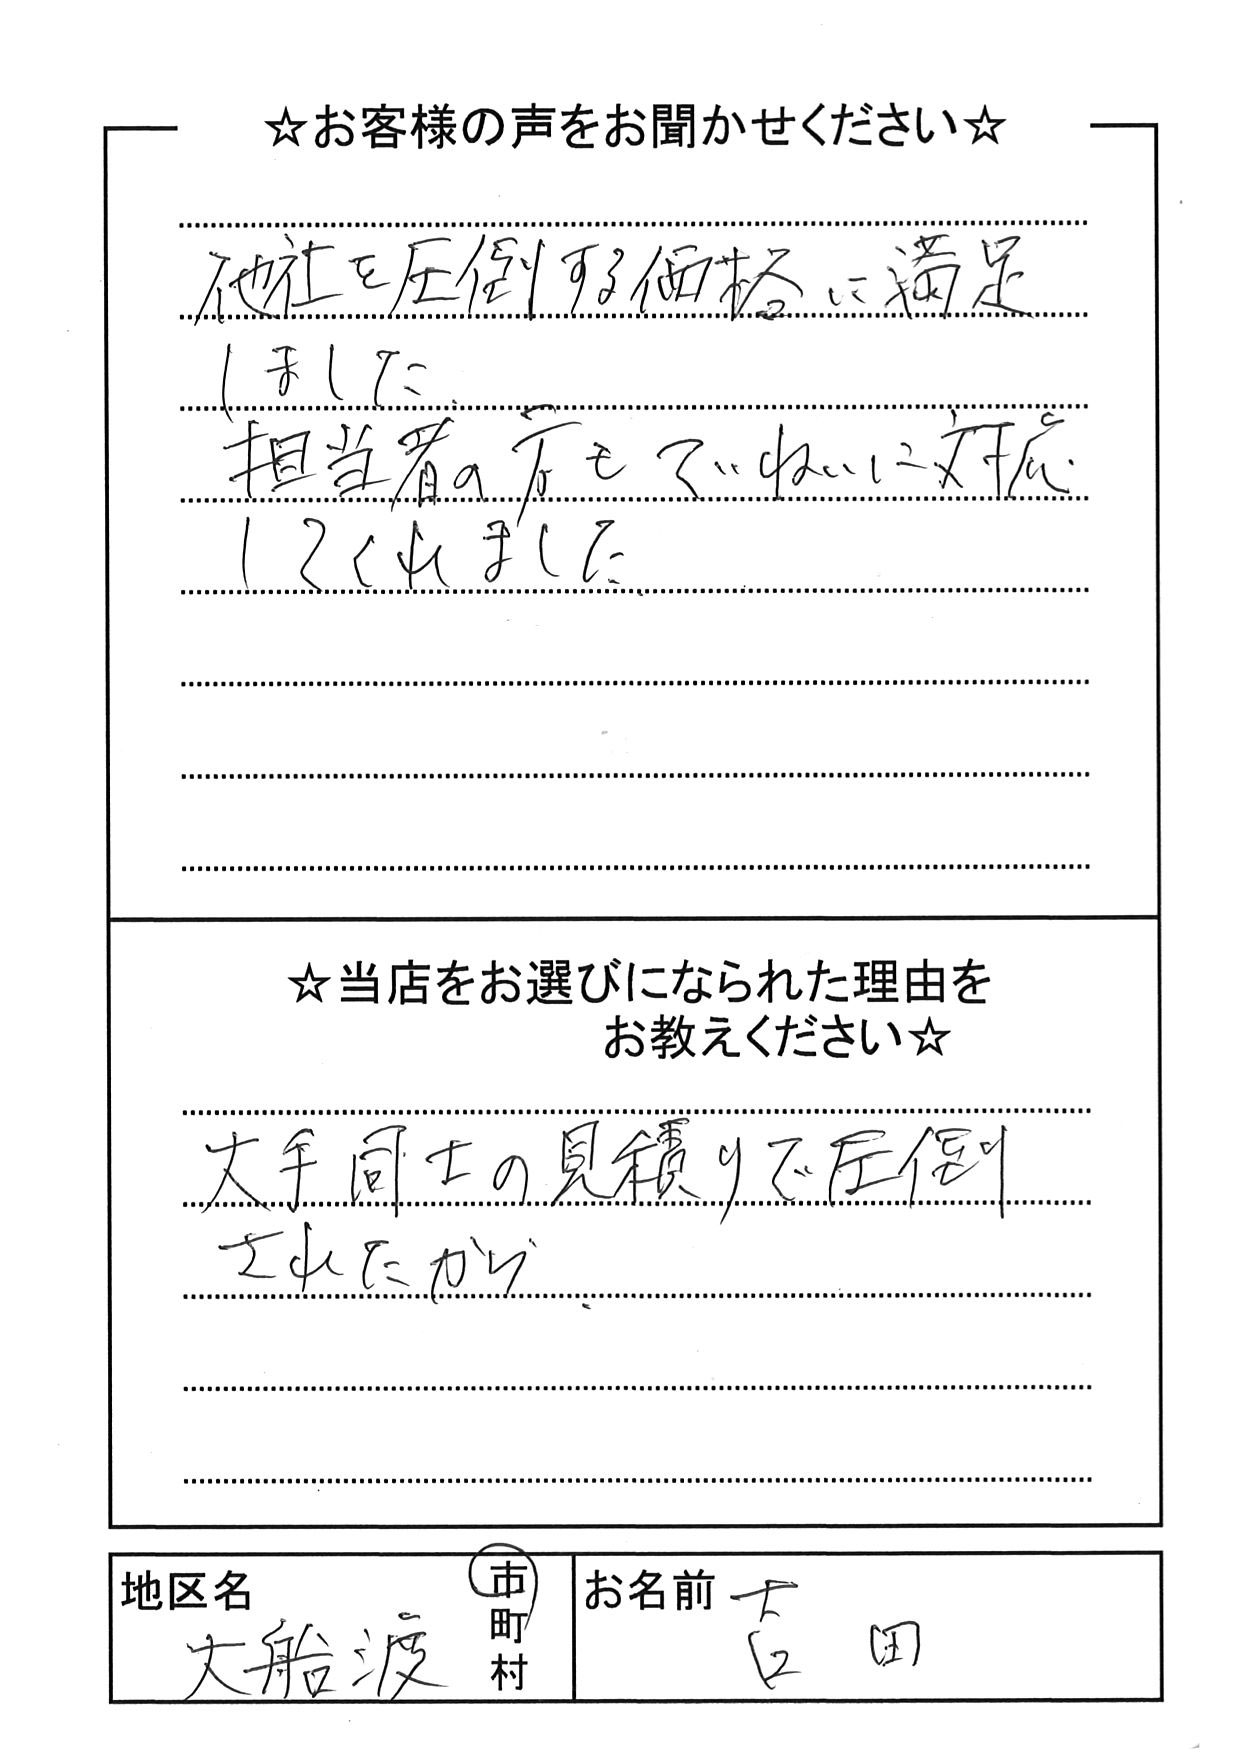 ☆お客様の声をお聞かせください☆
他社を圧倒する価格に満足
しました.
担当者の方もていねいに対応
してくれました.
☆当店をお選びになられた理由を
お教えください☆
大手同士の見積りで圧倒
されたから.
地区名
大船渡
市
町
村
お名前
吉田